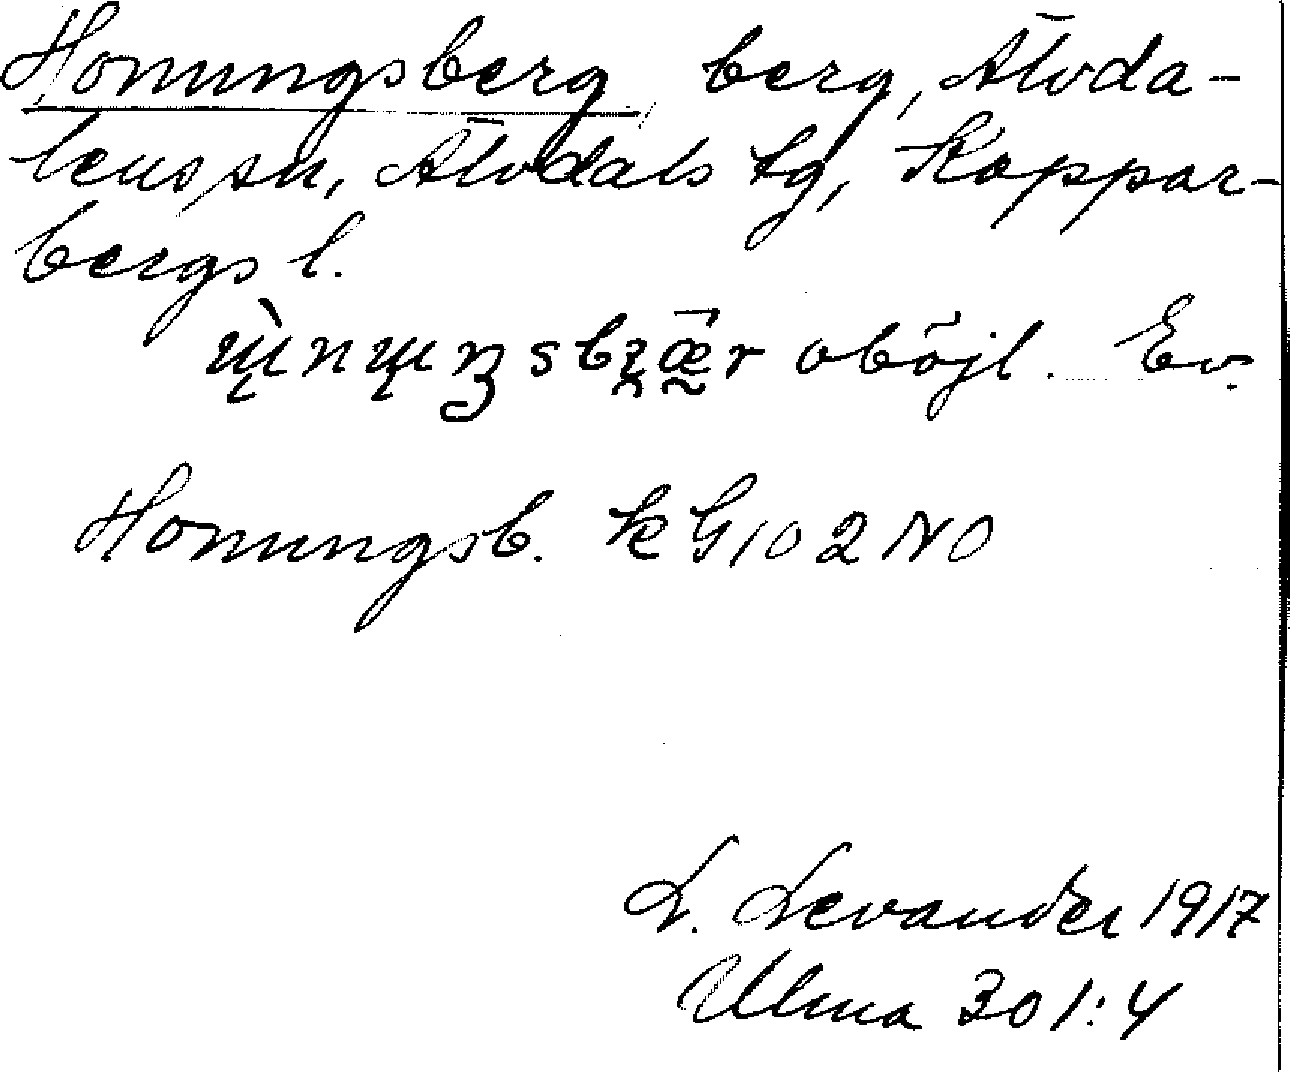 Honungsberg berg, Älvda-
lens sn, Älvdals tg, Koppar-
bergs l.
oböjl. Ev.
Honungsb. k G 10 2 NO
L. Levander 1917
Ulma 301:4